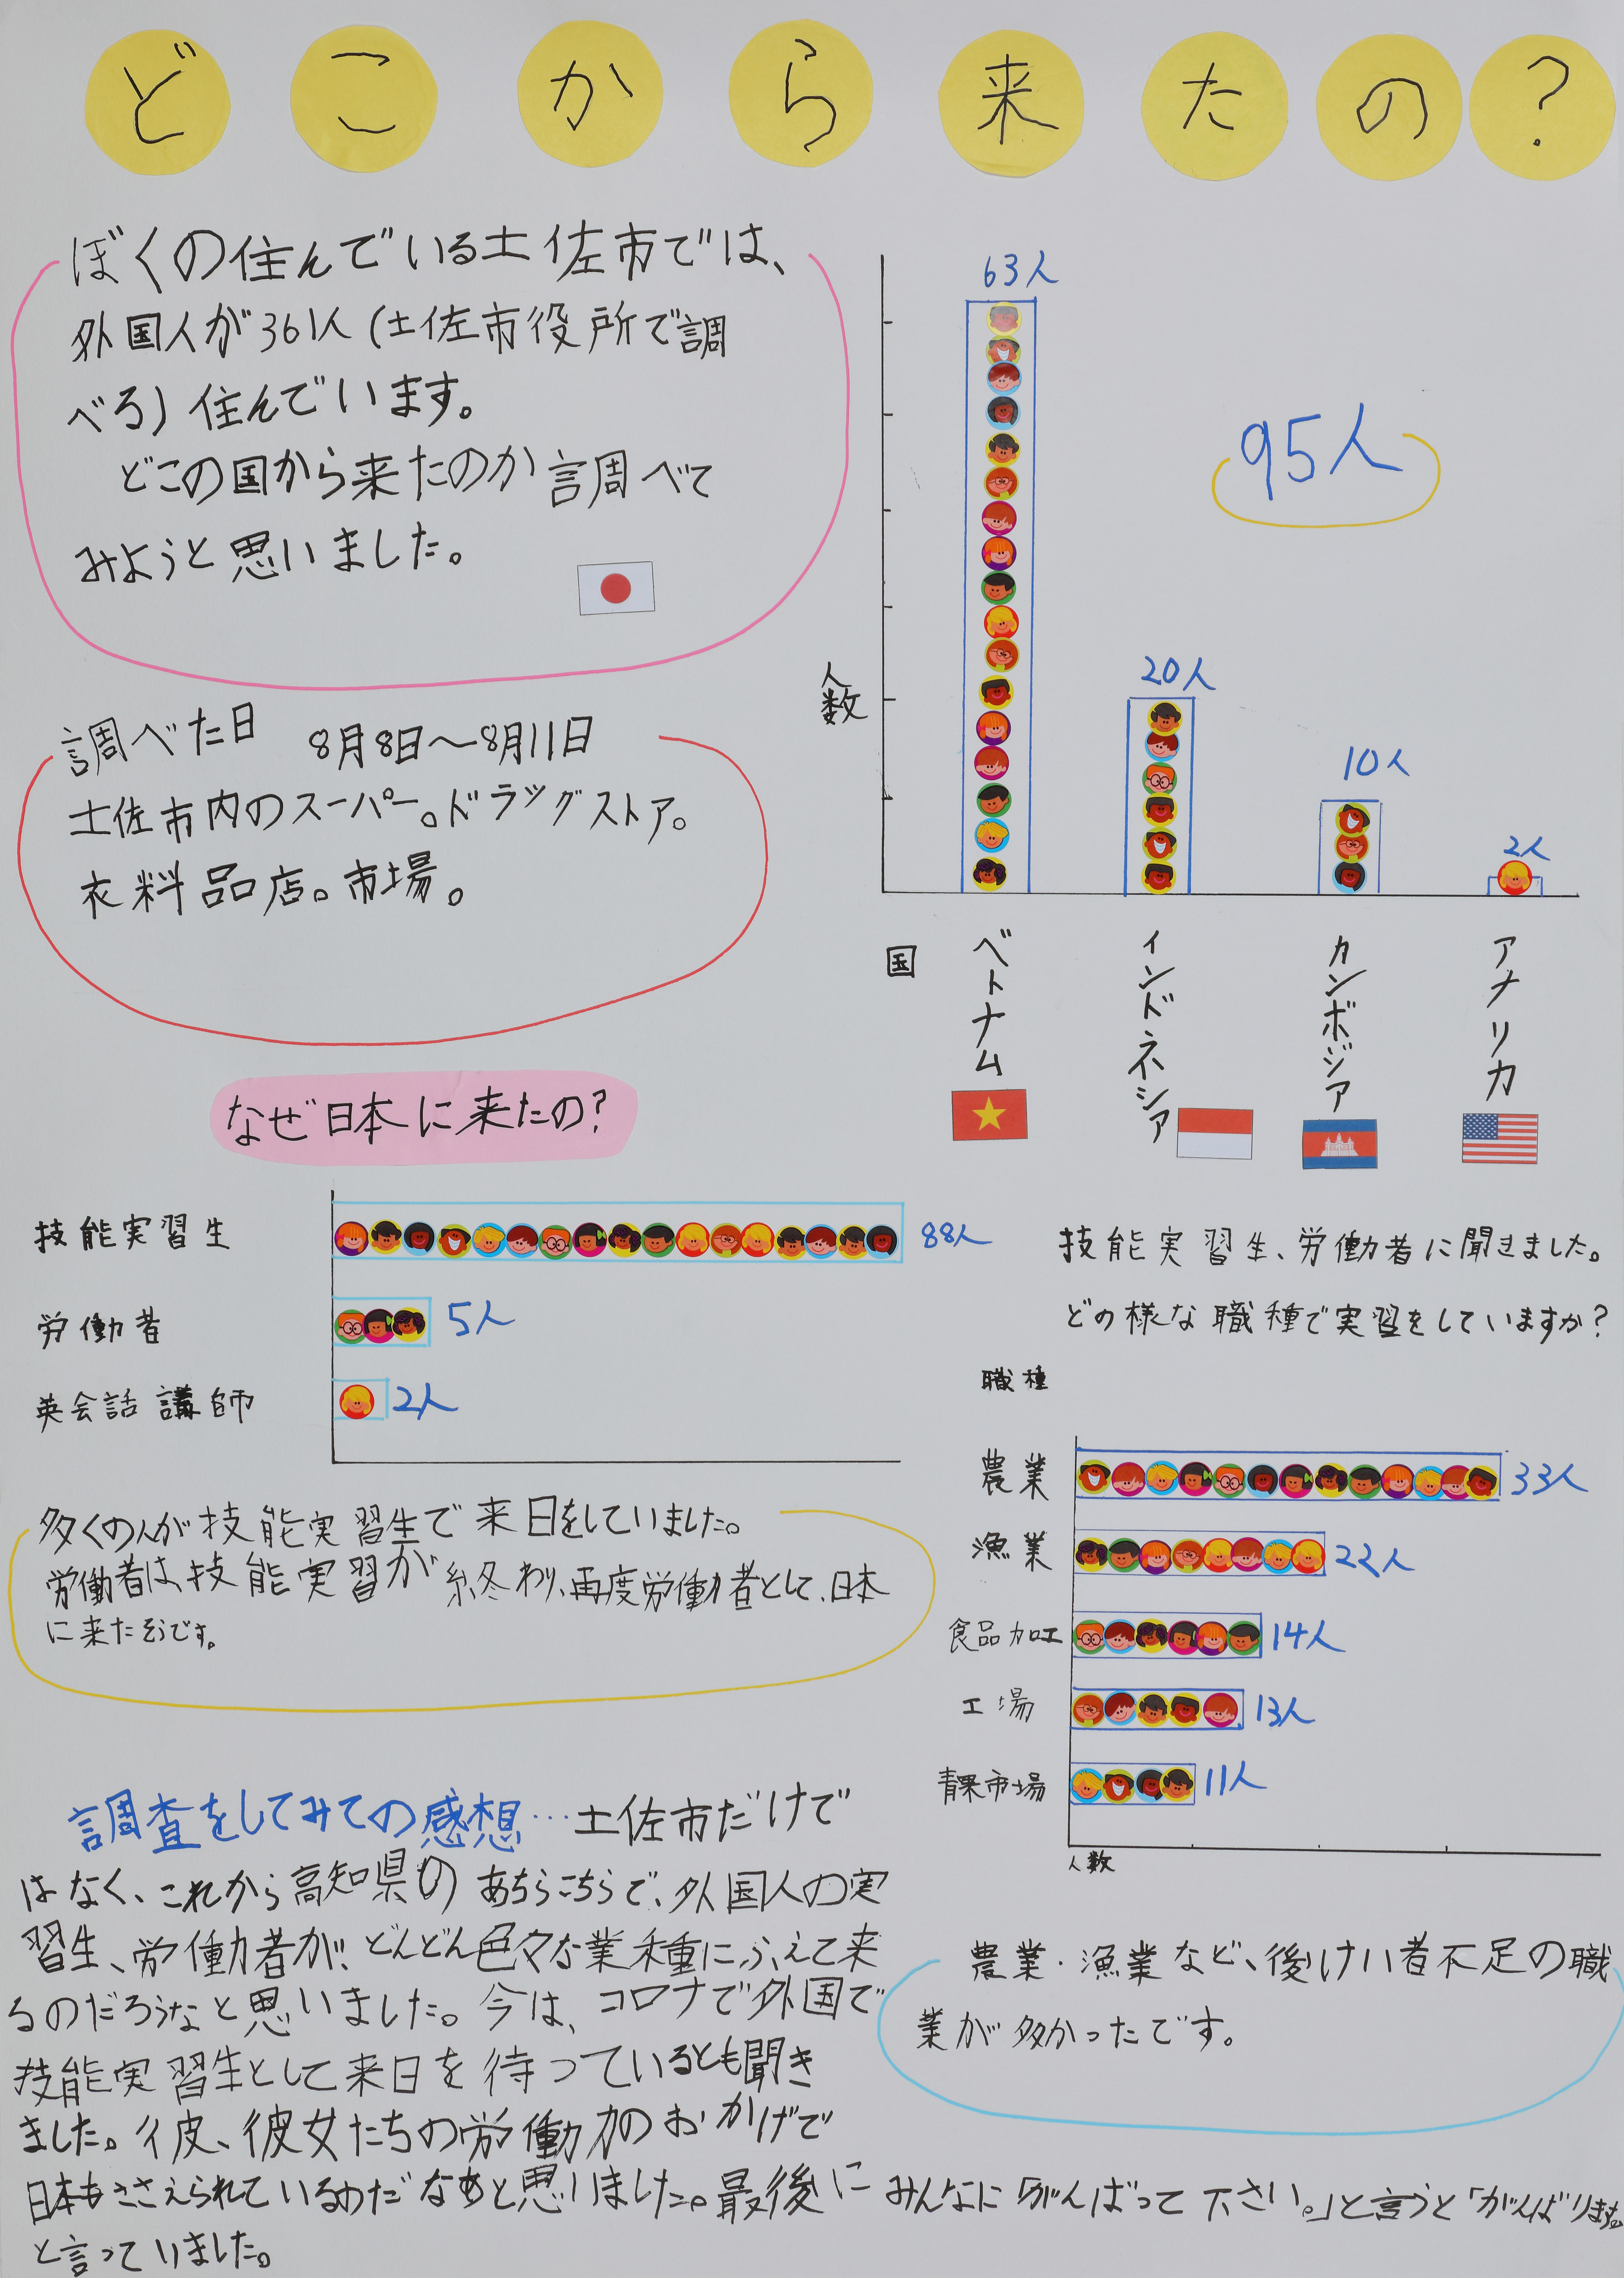 どこから来たの？
ぼくの住んでいる土佐市では、
外国人が361人(土佐市役所で調
べる)住んでいます。
どこの国から来たのか調べて
みようと思いました。
調べた日 8月8日～8月11日
土佐市内のスーパー。ドラッグストア。
衣料品店。市場。
95人
人数
63人
20人
10人
2人
国
ベトナム
インドネシア
カンボジア
アメリカ
なぜ日本に来たの?
技能実習生 88人
労働者 5人
英会話講師 2人
多くの人が技能実習生で来日をしていました。
労働者は、技能実習が終わり、再度労働者として、日本
に来たそうです。
技能実習生、労働者に聞きました。
どの様な職種で実習をしていますか?
職種
農業 33人
漁業 22人
食品加工 14人
工場 13人
青果市場 11人
人数
農業・漁業など、後けい者不足の職
業が多かったです。
調査をしてみての感想…土佐市だけで
はなく、これから高知県のあちらこちらで、外国人の実
習生、労働者が、どんどん色々な業種にふえて来
るのだろうなと思いました。今は、コロナで外国で
技能実習生として来日を待っているとも聞き
ました。彼、彼女たちの労働力のおかげで
日本もささえられているのだなあと思いました。最後にみんなに「がんばって下さい。」と言うと「がんばります。
と言っていました。